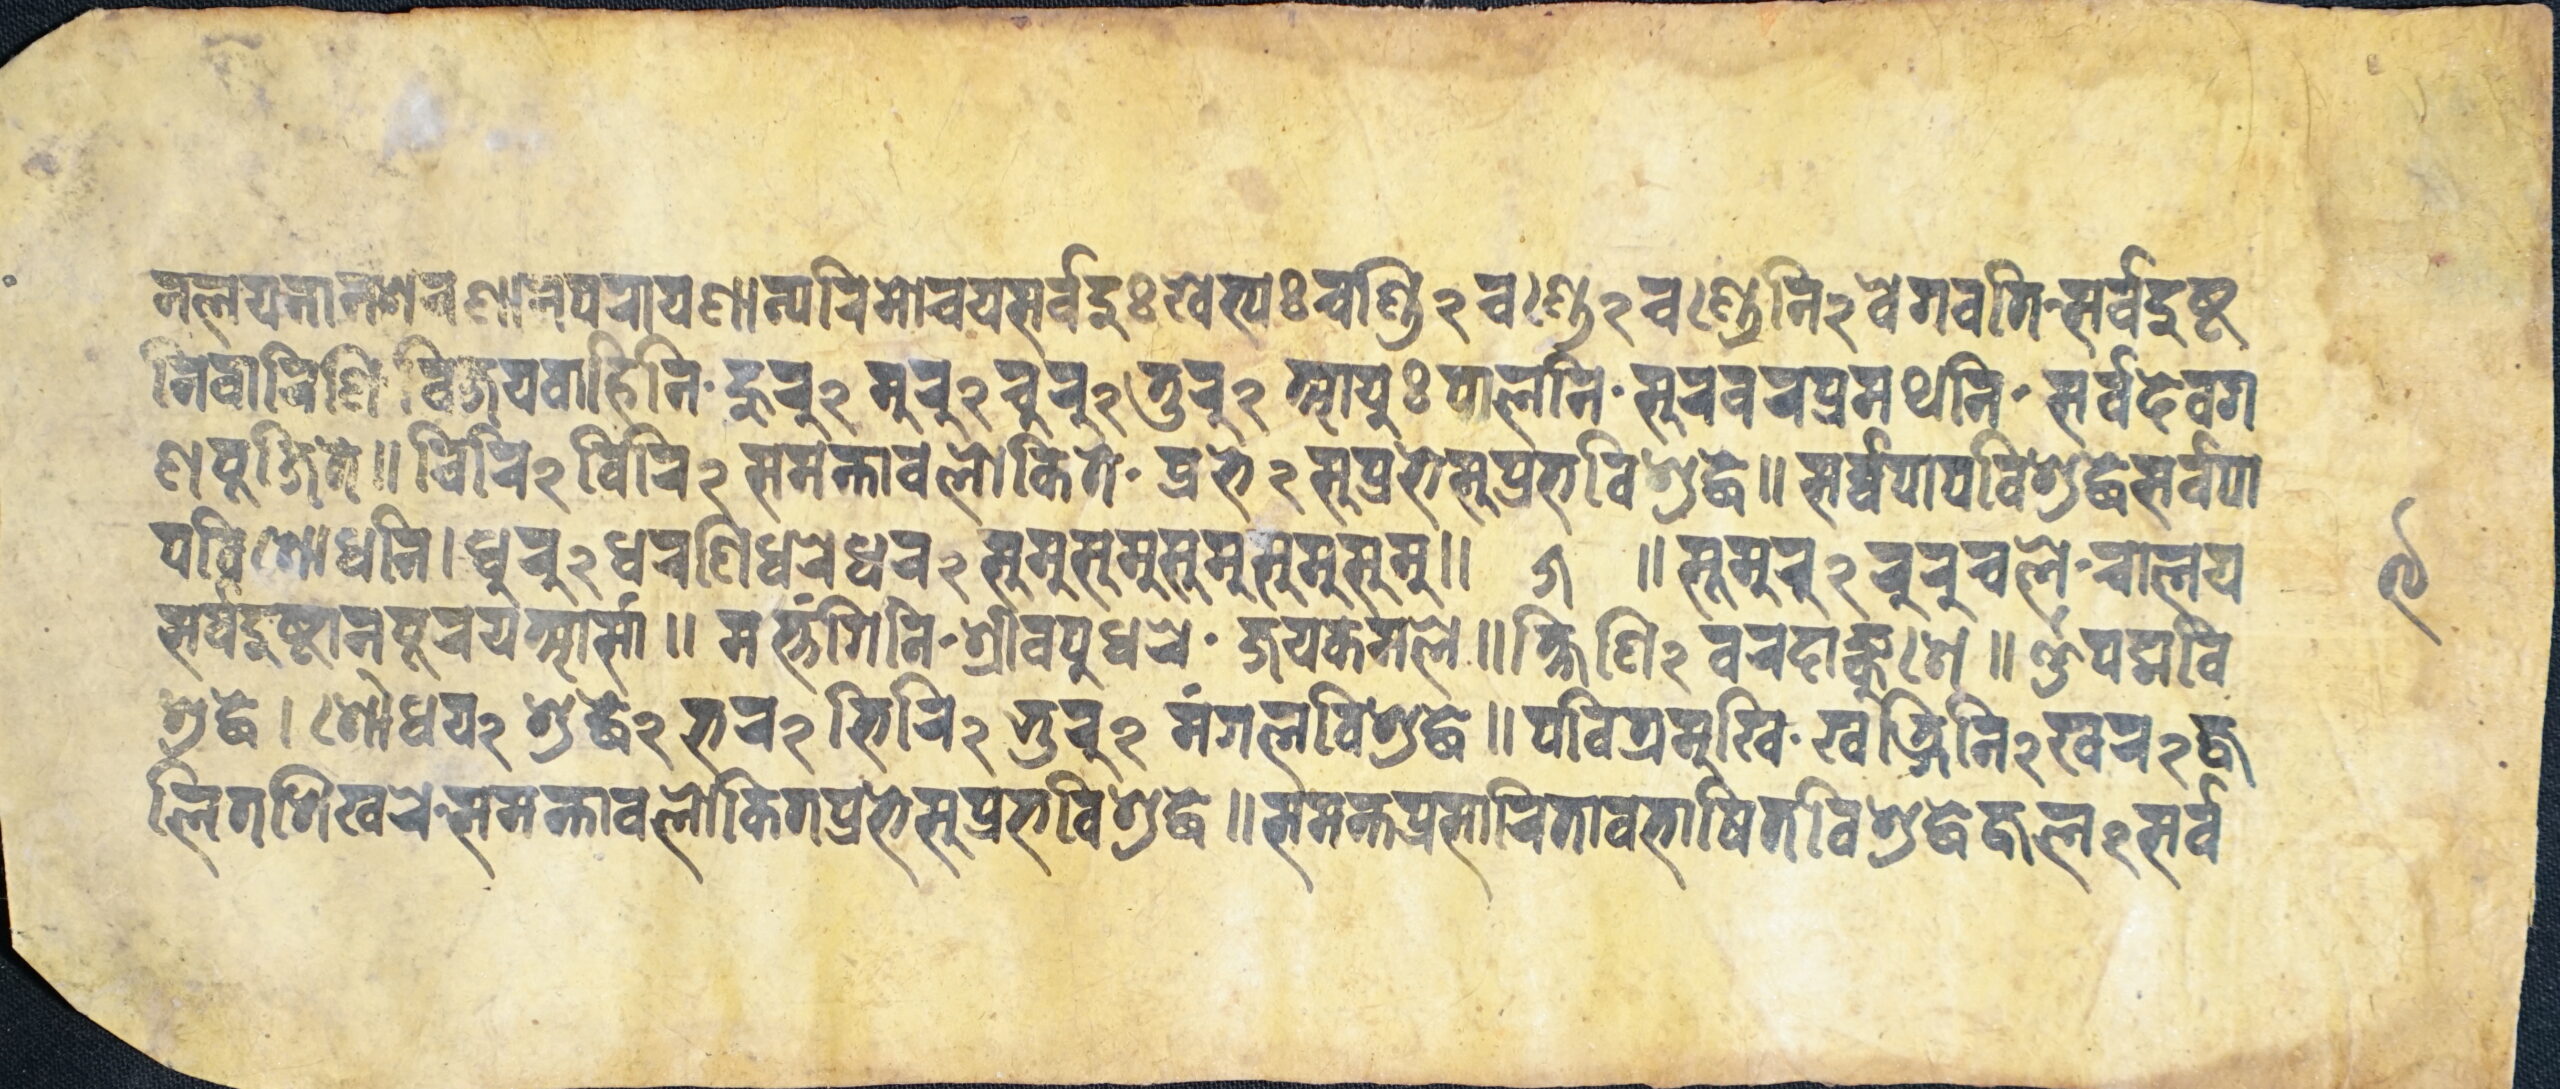 नलयनानशरणानपरायणान्परिमोचयसर्वदुःखेभ्यःचण्डि२चण्डे२चण्डेनि२वेगवति·सर्वदुष्ट
निवारिणि·विजयवाहिनि·हुरु२मुरु२चुरु२तुरु२आयुःपालनि·सुरवरप्रमथनि·सर्वदेवग
णपूजिते॥चिरि२विरि२समन्तावलोकिते·प्रभे२सुप्रभेसुप्रभविशुद्धे॥सर्वपापविशुद्धेसर्वपा
पविशोधनि।धुरु२धरणिधरेधर२सुमुसुमुसुमुसुमुसुमु॥ ॥सुमुरु२रुरुचले·चालय
सर्वदुष्टानपूरयआसां॥मस्तंगिनि·श्रीवपुधरे·जयकमले॥क्षिणि२वरदाङ्कुशे॥ॐपद्मवि
शुद्धे।शोधय२शुद्धे२भर२भिरि२भुरु२मंगलविशुद्धे॥पवित्रमुखि·खङ्गिनि२खर२ज्व
लितशिखरे·समन्तावलोकितप्रभेसुप्रभविशुद्धे॥समन्तप्रसारितावभाषितविशुद्धेज्वल२सर्व
९